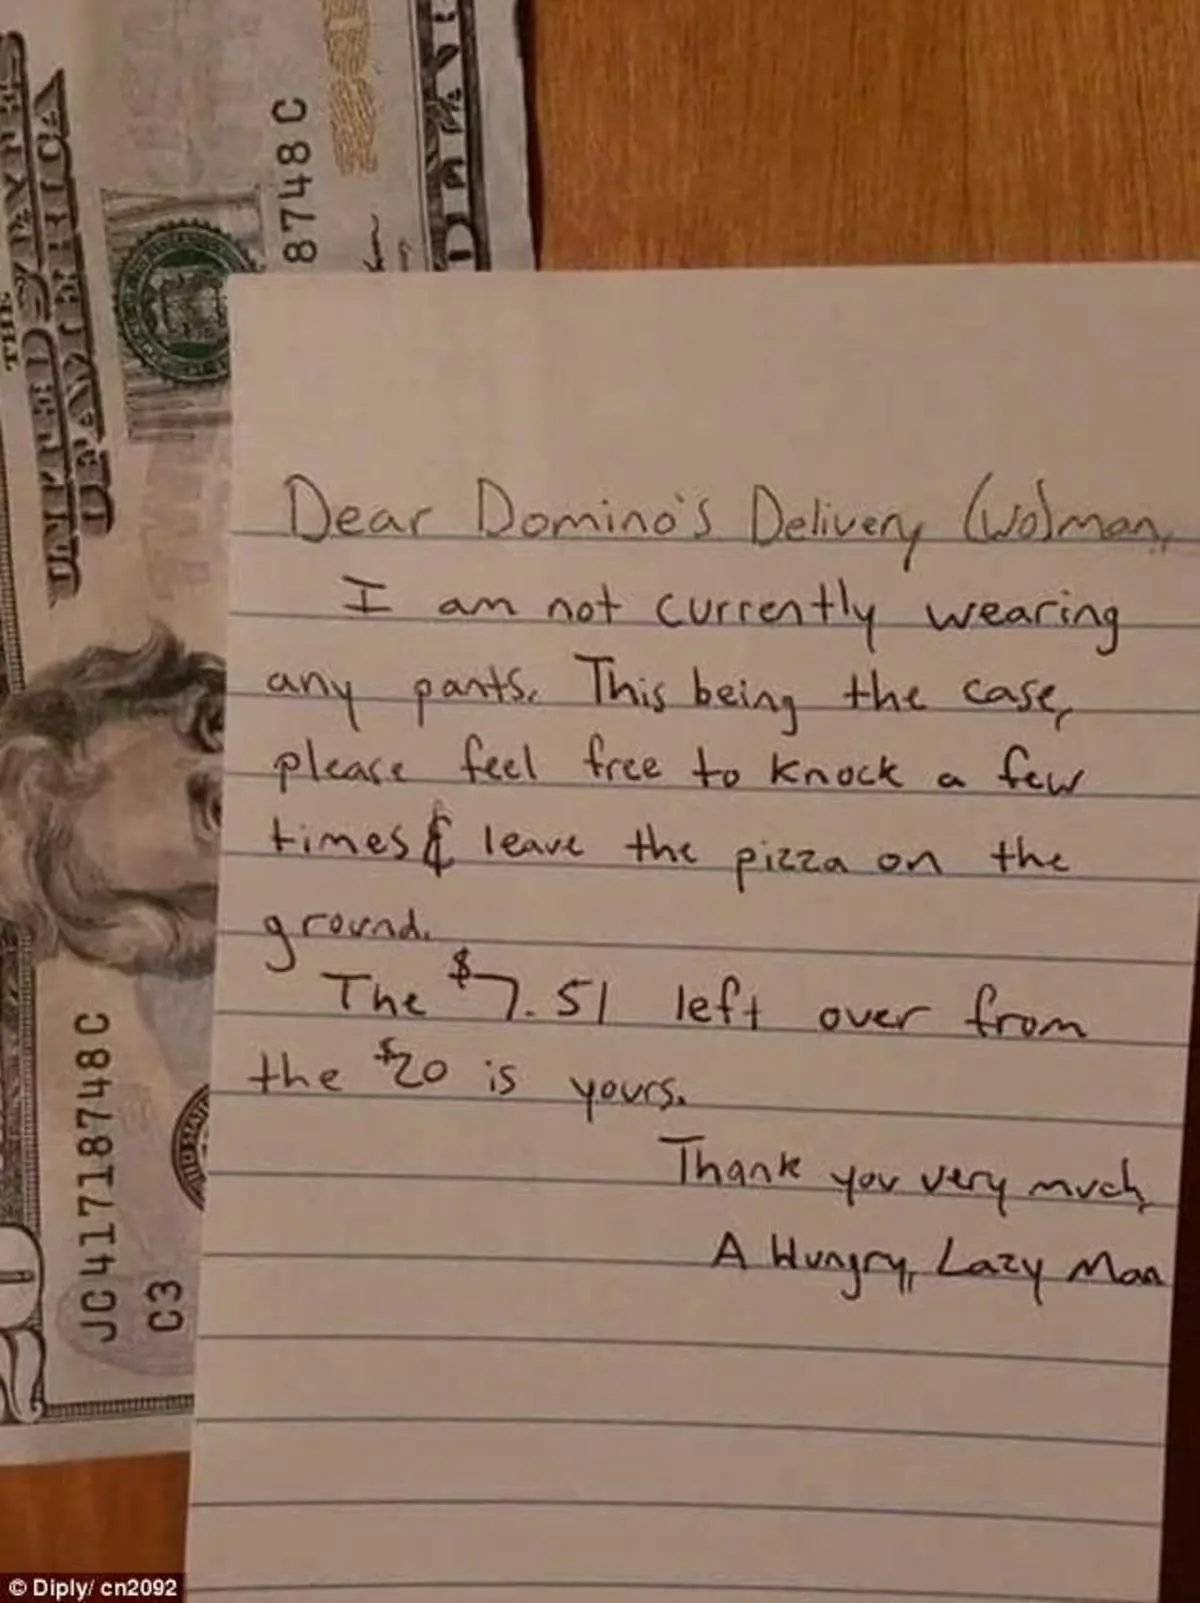 THE UNITED STATES
OF AMERICA
8748 C
JC 41718748 C
C3
20
Dear Domino's Delivery (Wo)man,
I am not currently wearing
any pants. This being the case,
please feel free to knock a few
times & leave the pizza on the
ground.
The $7.51 left over from
the $20 is yours.
Thank you very much,
A Hungry, Lazy Man
© Diply/ cn2092